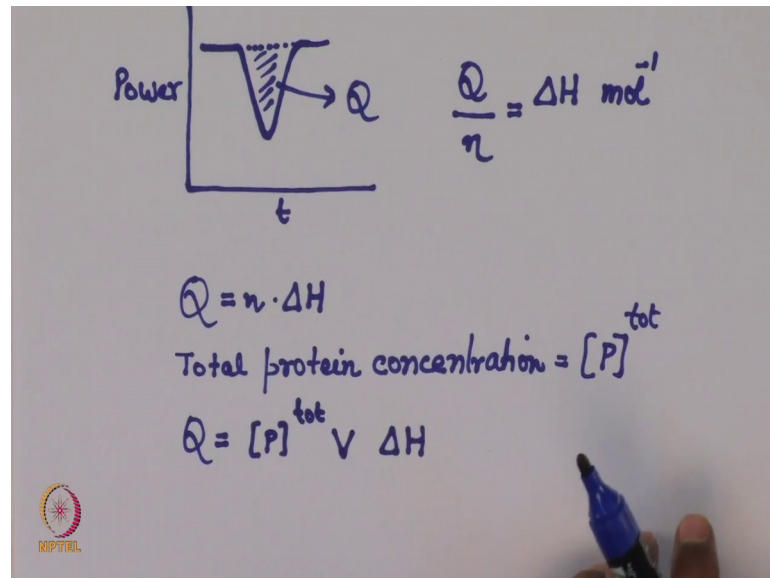 Power
Q
t
Q/n = ΔH mol⁻¹
Q = n · ΔH
Total protein concentration = [P]^tot
Q = [P]^tot V ΔH
NPTEL